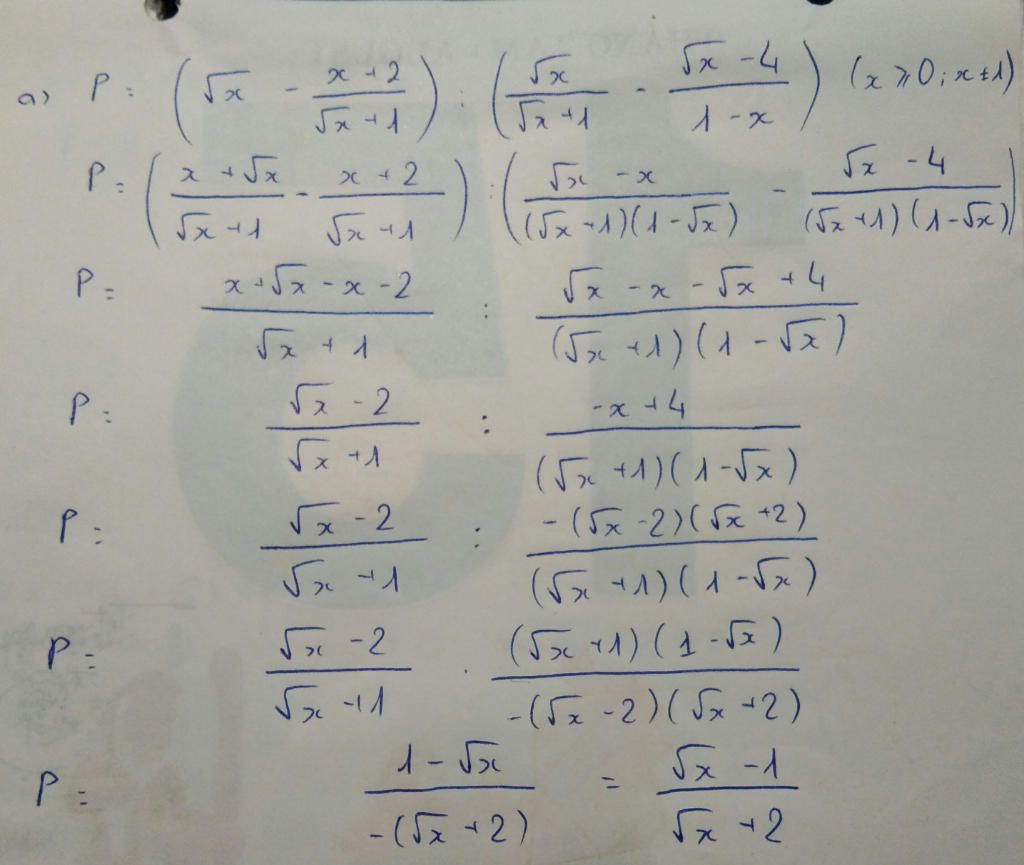 a) P = (√x - (x + 2)/(√x + 1)) : (√x/(√x + 1) - (√x - 4)/(1 - x)) (x ⩾ 0; x ≠ 1)
P = ((x + √x)/(√x + 1) - (x + 2)/(√x + 1)) : ((√x - x)/((√x + 1)(1 - √x)) - (√x - 4)/((√x + 1)(1 - √x)))
P = (x + √x - x - 2)/(√x + 1) : (√x - x - √x + 4)/((√x + 1)(1 - √x))
P = (√x - 2)/(√x + 1) : (-x + 4)/((√x + 1)(1 - √x))
P = (√x - 2)/(√x + 1) : (-(√x - 2)(√x + 2))/((√x + 1)(1 - √x))
P = (√x - 2)/(√x + 1) . ((√x + 1)(1 - √x))/(-(√x - 2)(√x + 2))
P = (1 - √x)/(-(√x + 2)) = (√x - 1)/(√x + 2)